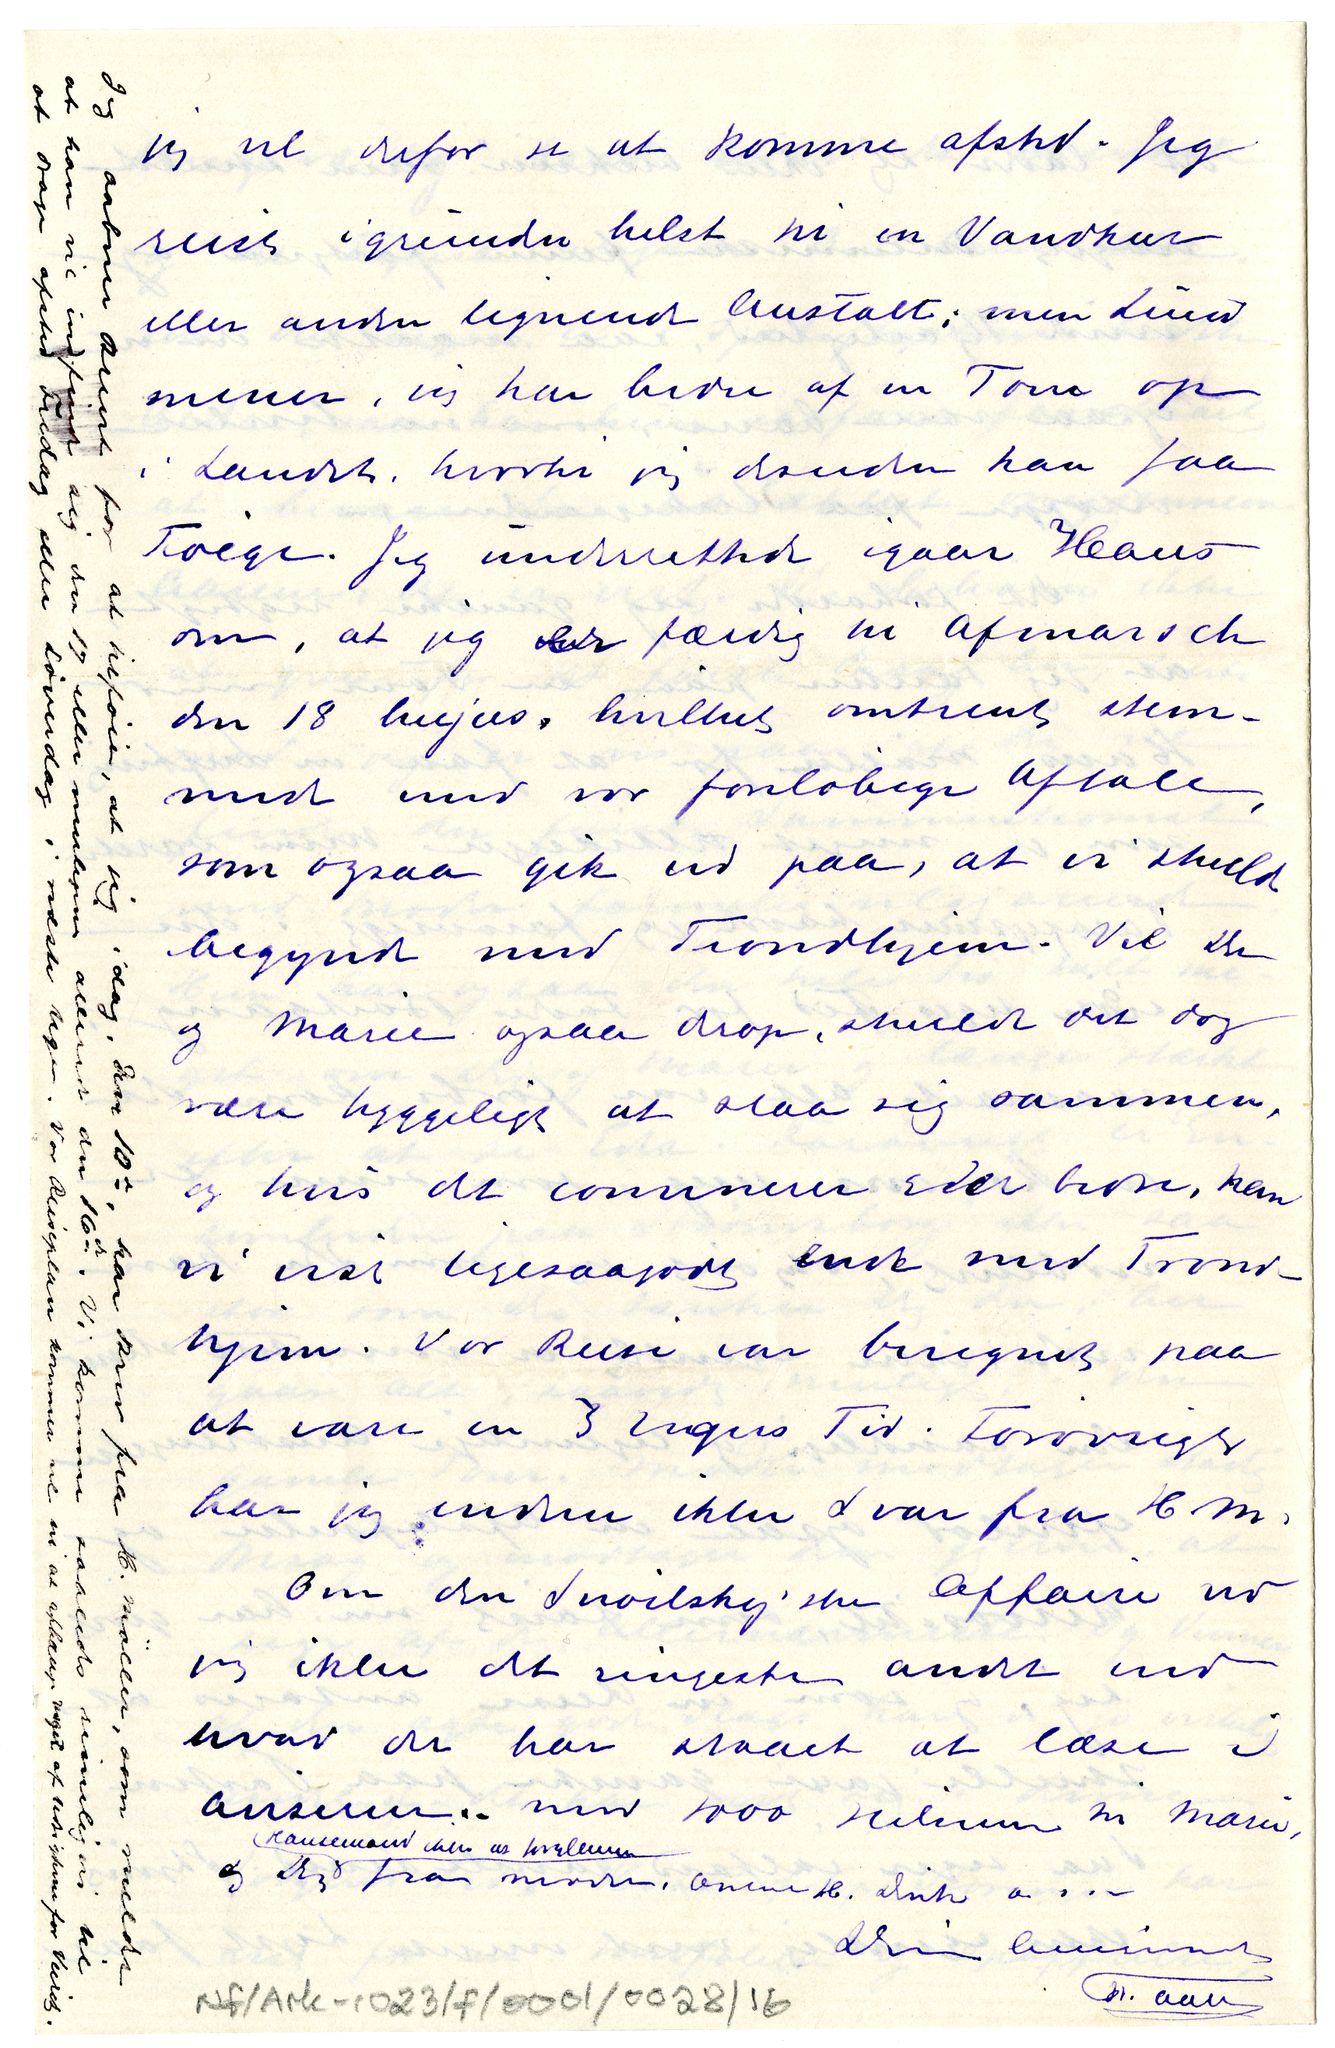 jeg vil derfor se at komme afsted. Jeg
reiste igrunden helst til en Vandkur
eller anden lignende Anstalt; men Lund
mener, jeg har bedre af en Tour op
i Landet, hvortil jeg desuden kan faa
Følge. Jeg underrettede igaar Hans
om, at jeg er færdig til Afmarsch
den 18 hujus, hvilket omtrent stem-
mede med vor foreløbige Aftale,
som ogsaa gik ud paa, at vi skulde
begynde med Trondhjem. Vil Du
og Marie ogsaa derop, skulde det dog
være hyggeligt at slaa sig sammen,
og hvis det convenerer Eder bedre, kan
vi vist ligesaagodt ende med Trond-
hjem. Vor Reise var beregnet paa
at vare en 3 Ugers Tid. Forøvrigt
har jeg endnu ikke Svar fra H M.
Om den Snoilsky'ske Affaire ved
jeg ikke det ringeste andet end
hvad der har staaet at læse i
Aviserne. Med 1000 Hilsener til Marie,
Hansemand ikke at forglemme
og Dig fra Moder, Anna H. Dick o s. v.
Din
N. Aall
Jeg aabner Brevet for at tilføie, at jeg idag, den 10de, har Brev fra H. Müller, som melder
at han vil indfinde sig den 17 eller muligens allerede den 16de. Vi komme saaledes rimeligvis til
at drage afsted Fredag eller Løverdag i næste Uge. Vor Reiseplan kommer vel til at afhænge noget af Udsigterne for Veiret.
Nf/Ark-1023/f/0001/0028/16